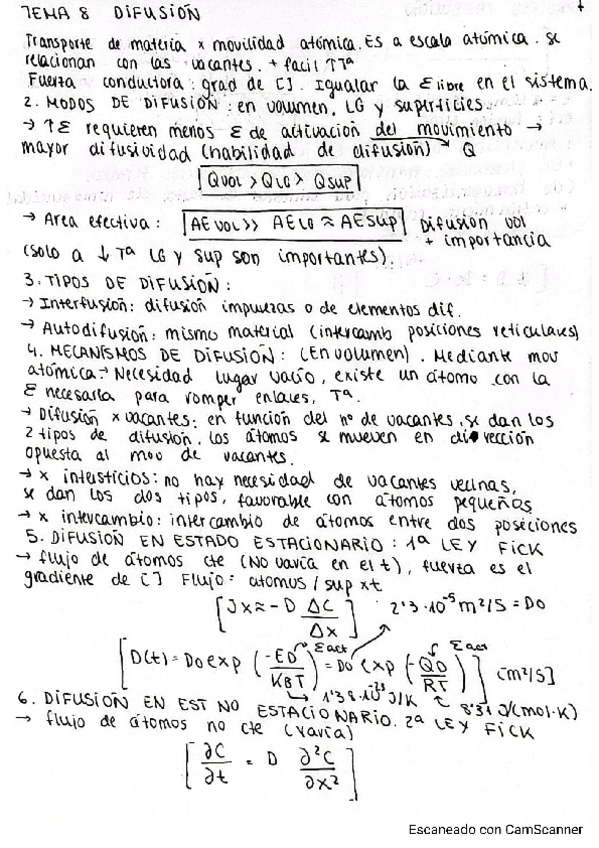 TEMA 8 DIFUSIÓN
Transporte de materia x movilidad atómica. Es a escala atómica. Se
relacionan con las vacantes. + facil ↑Tª
Fuerza conductora: grad de []. Igualar la Elibre en el sistema.
2. MODOS DE DIFUSIÓN: en volumen, LG y superficies.
→ ↑E requieren menos E de activación del movimiento →
mayor difusividad (habilidad de difusión) Q
QVOL > QLG > QSUP
→ Area efectiva: AEVOL >> AELG ≈ AESUP Difusión vol
+ importancia
(solo a ↓ Tª LG y sup son importantes)
3. TIPOS DE DIFUSIÓN:
→ Interfusión: difusión impurezas o de elementos dif.
→ Autodifusión: mismo material (intercamb posiciones reticulares)
4. MECANISMOS DE DIFUSIÓN: (En volumen). Mediante mov
atómica → Necesidad lugar vacío, existe un átomo con la
E necesaria para romper enlaces, Tª.
→ Difusión x vacantes: en función del nº de vacantes. se dan los
2 tipos de difusión. Los átomos se mueven en dirección
opuesta al mov de vacantes.
→ x intersticios: no hay necesidad de vacantes vecinas,
se dan los dos tipos, favorable con átomos pequeños
→ x intercambio: intercambio de átomos entre dos posiciones
5. DIFUSIÓN EN ESTADO ESTACIONARIO: 1ª LEY FICK
→ flujo de átomos cte (NO varía en el t), fuerza es el
gradiente de [] Flujo = atomos / sup x t
[Jx ≈ -D ΔC/Δx] 2'3·10⁻⁵ m²/s = D0
[D(t) = D0 exp (-ED/KBT) = D0 exp (-QD/RT)] [m²/s]
Eact Eact
1'38·10⁻²³ J/K 8'31 J/(mol·K)
6. DIFUSIÓN EN EST NO ESTACIONARIO. 2ª LEY FICK
→ flujo de átomos no cte (varía)
[∂C/∂t = D ∂²C/∂x²]
Escaneado con CamScanner